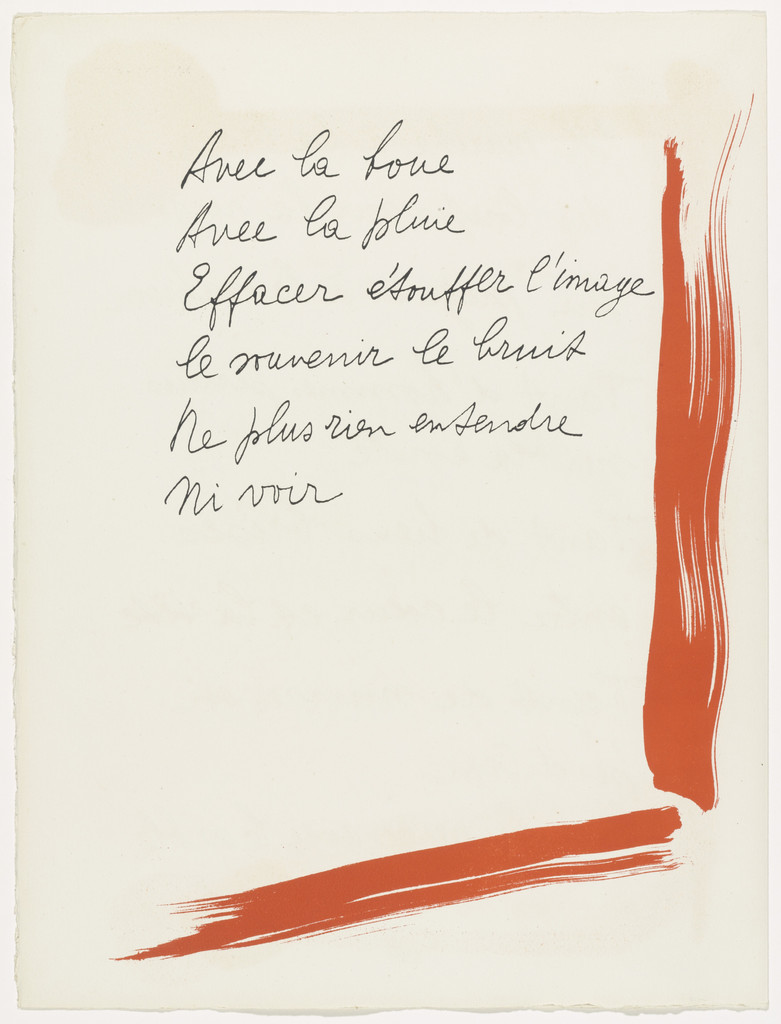 Avec la boue
Avec la pluie
Effacer étouffer l'image
le souvenir le bruit
Ne plus rien entendre
Ni voir